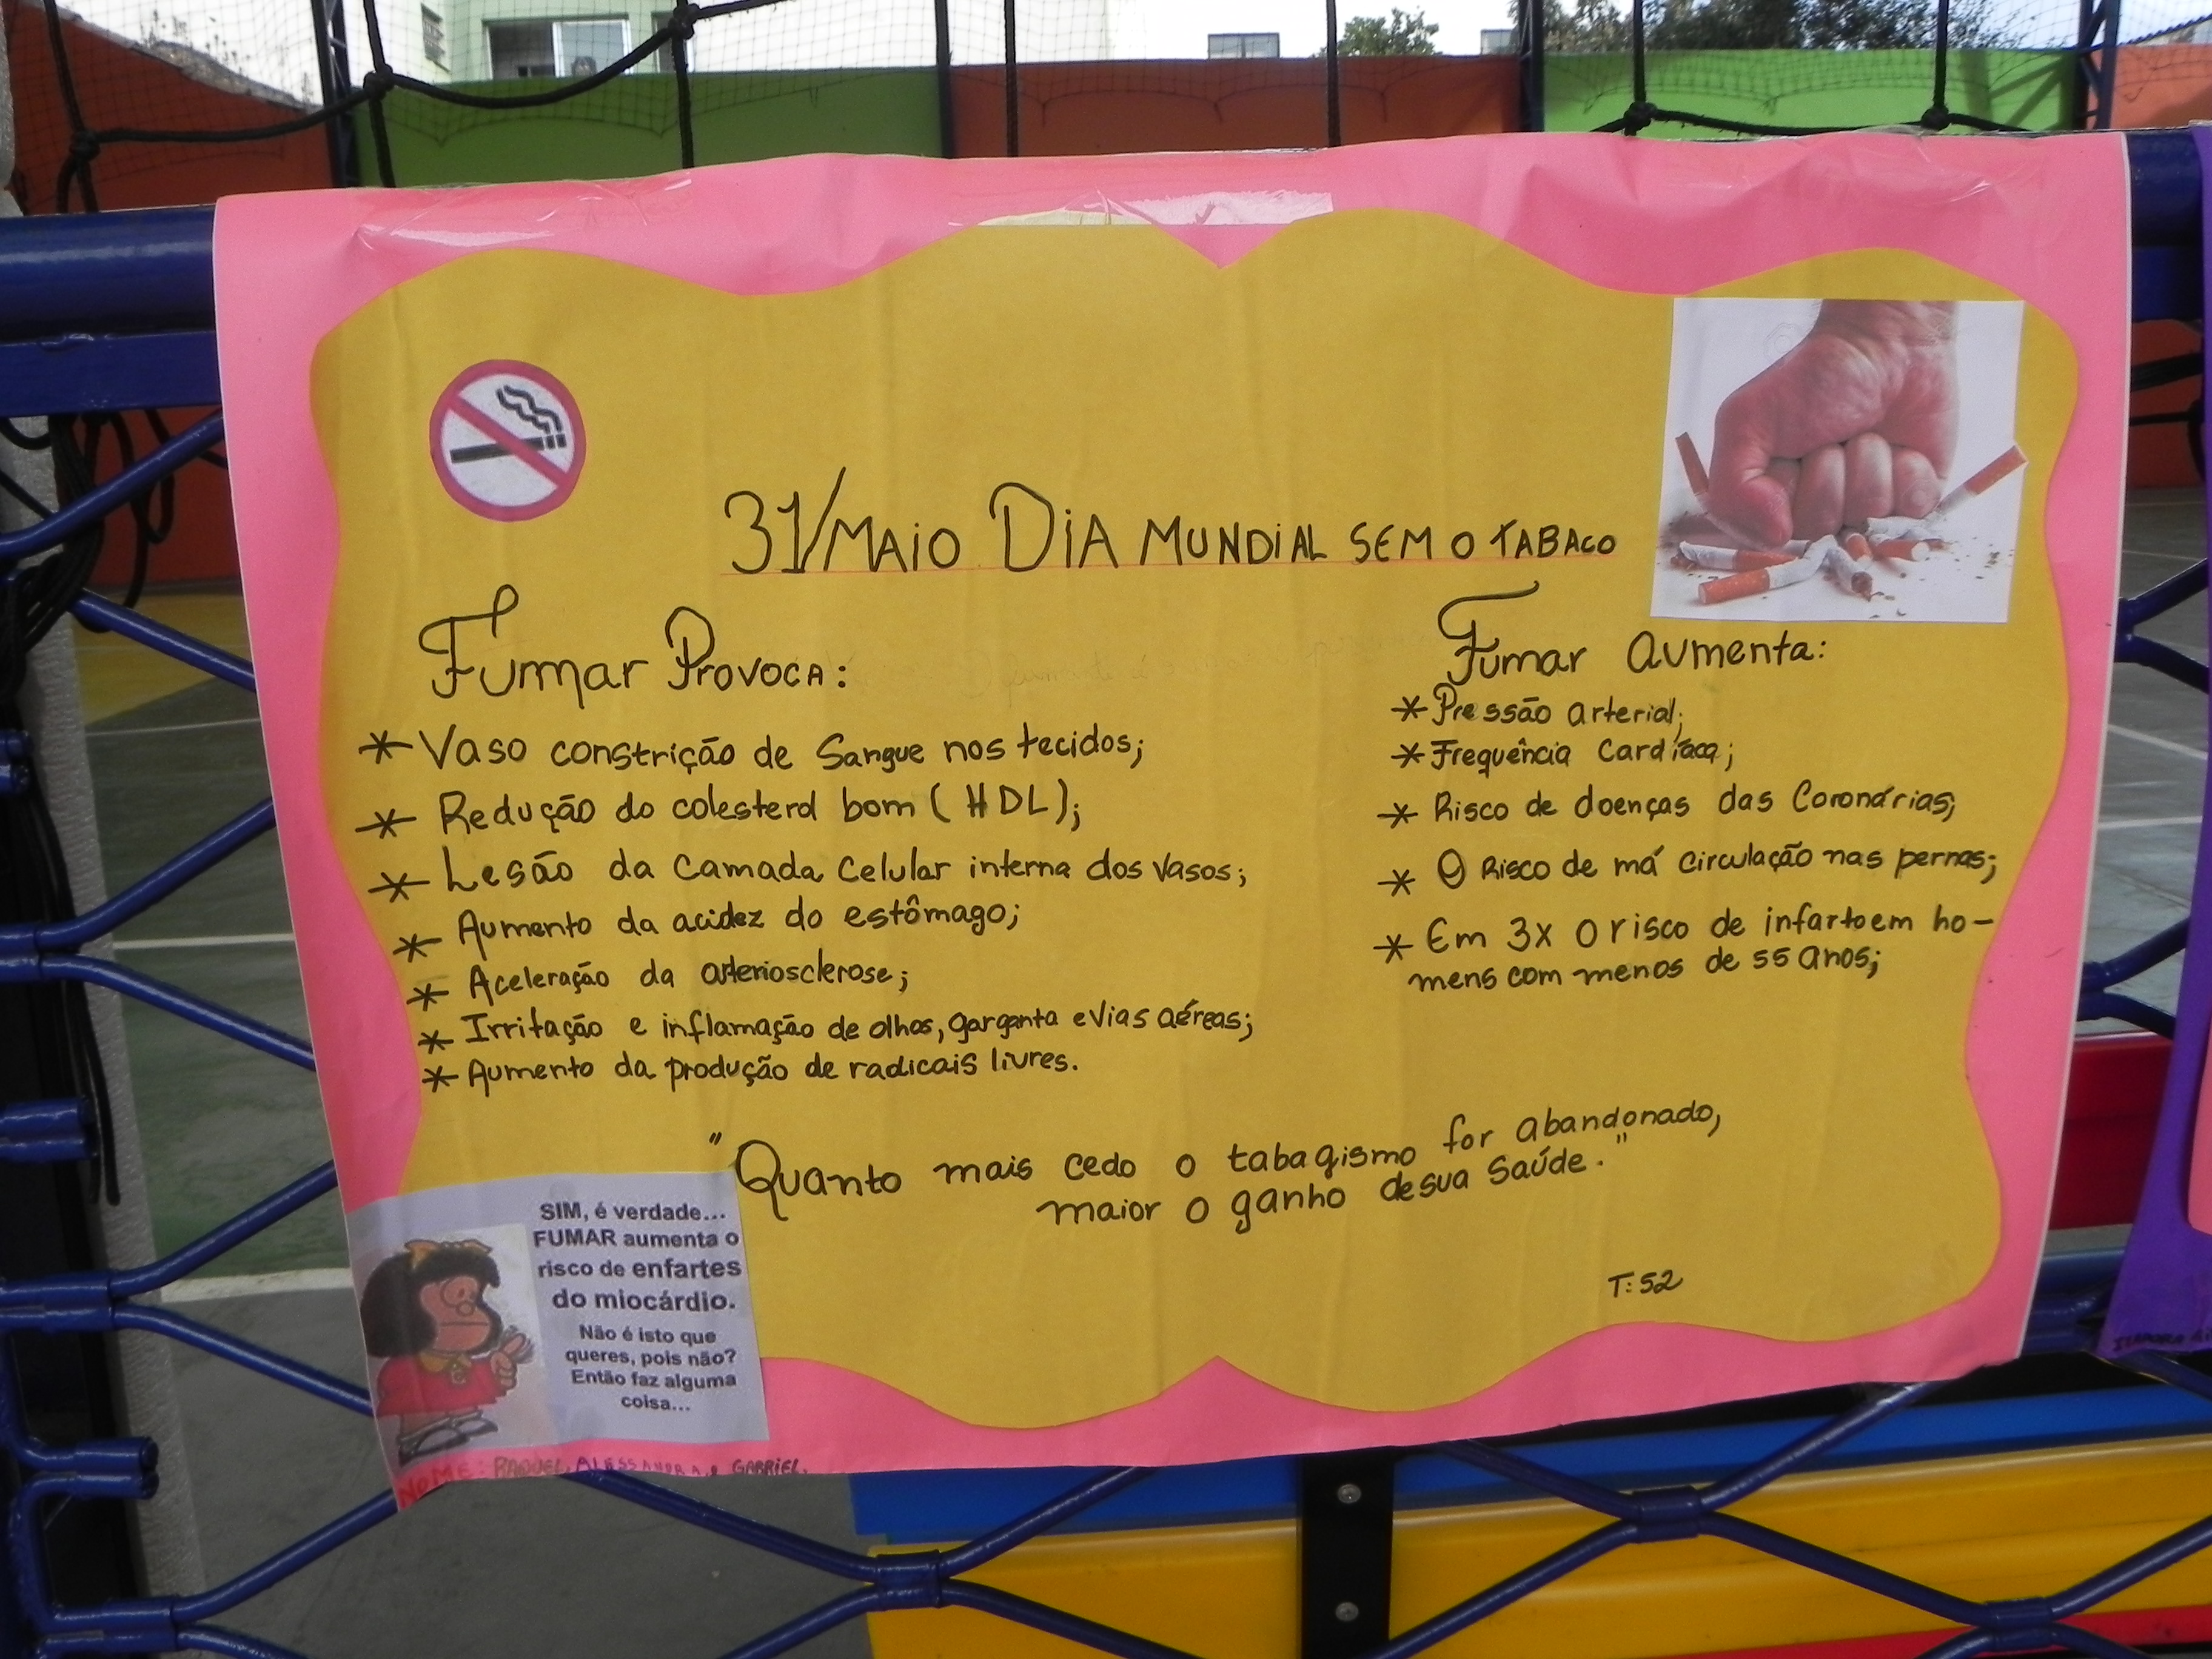 31/MAIO DIA MUNDIAL SEM O TABACO
Fumar Provoca:
* Vaso constrição de Sangue nos tecidos;
* Redução do colesterol bom (HDL);
* Lesão da Camada Celular interna dos Vasos;
* Aumento da acidez do estômago;
* Aceleração da arteriosclerose;
* Irritação e inflamação de olhos, garganta e Vias aéreas;
* Aumento da produção de radicais livres.
Fumar Aumenta:
* Pressão arterial;
* Frequência Cardíaca;
* Risco de doenças das Coronárias;
* O Risco de má circulação nas pernas;
* Em 3x o risco de infarto em ho-
mens com menos de 55 anos;
"Quanto mais cedo o tabagismo for abandonado,
maior o ganho de sua Saúde."
T: 52
SIM, é verdade...
FUMAR aumenta o
risco de enfartes
do miocárdio.
Não é isto que
queres, pois não?
Então faz alguma
coisa...
NOME: RAQUEL, ALESSANDRA, GABRIEL.